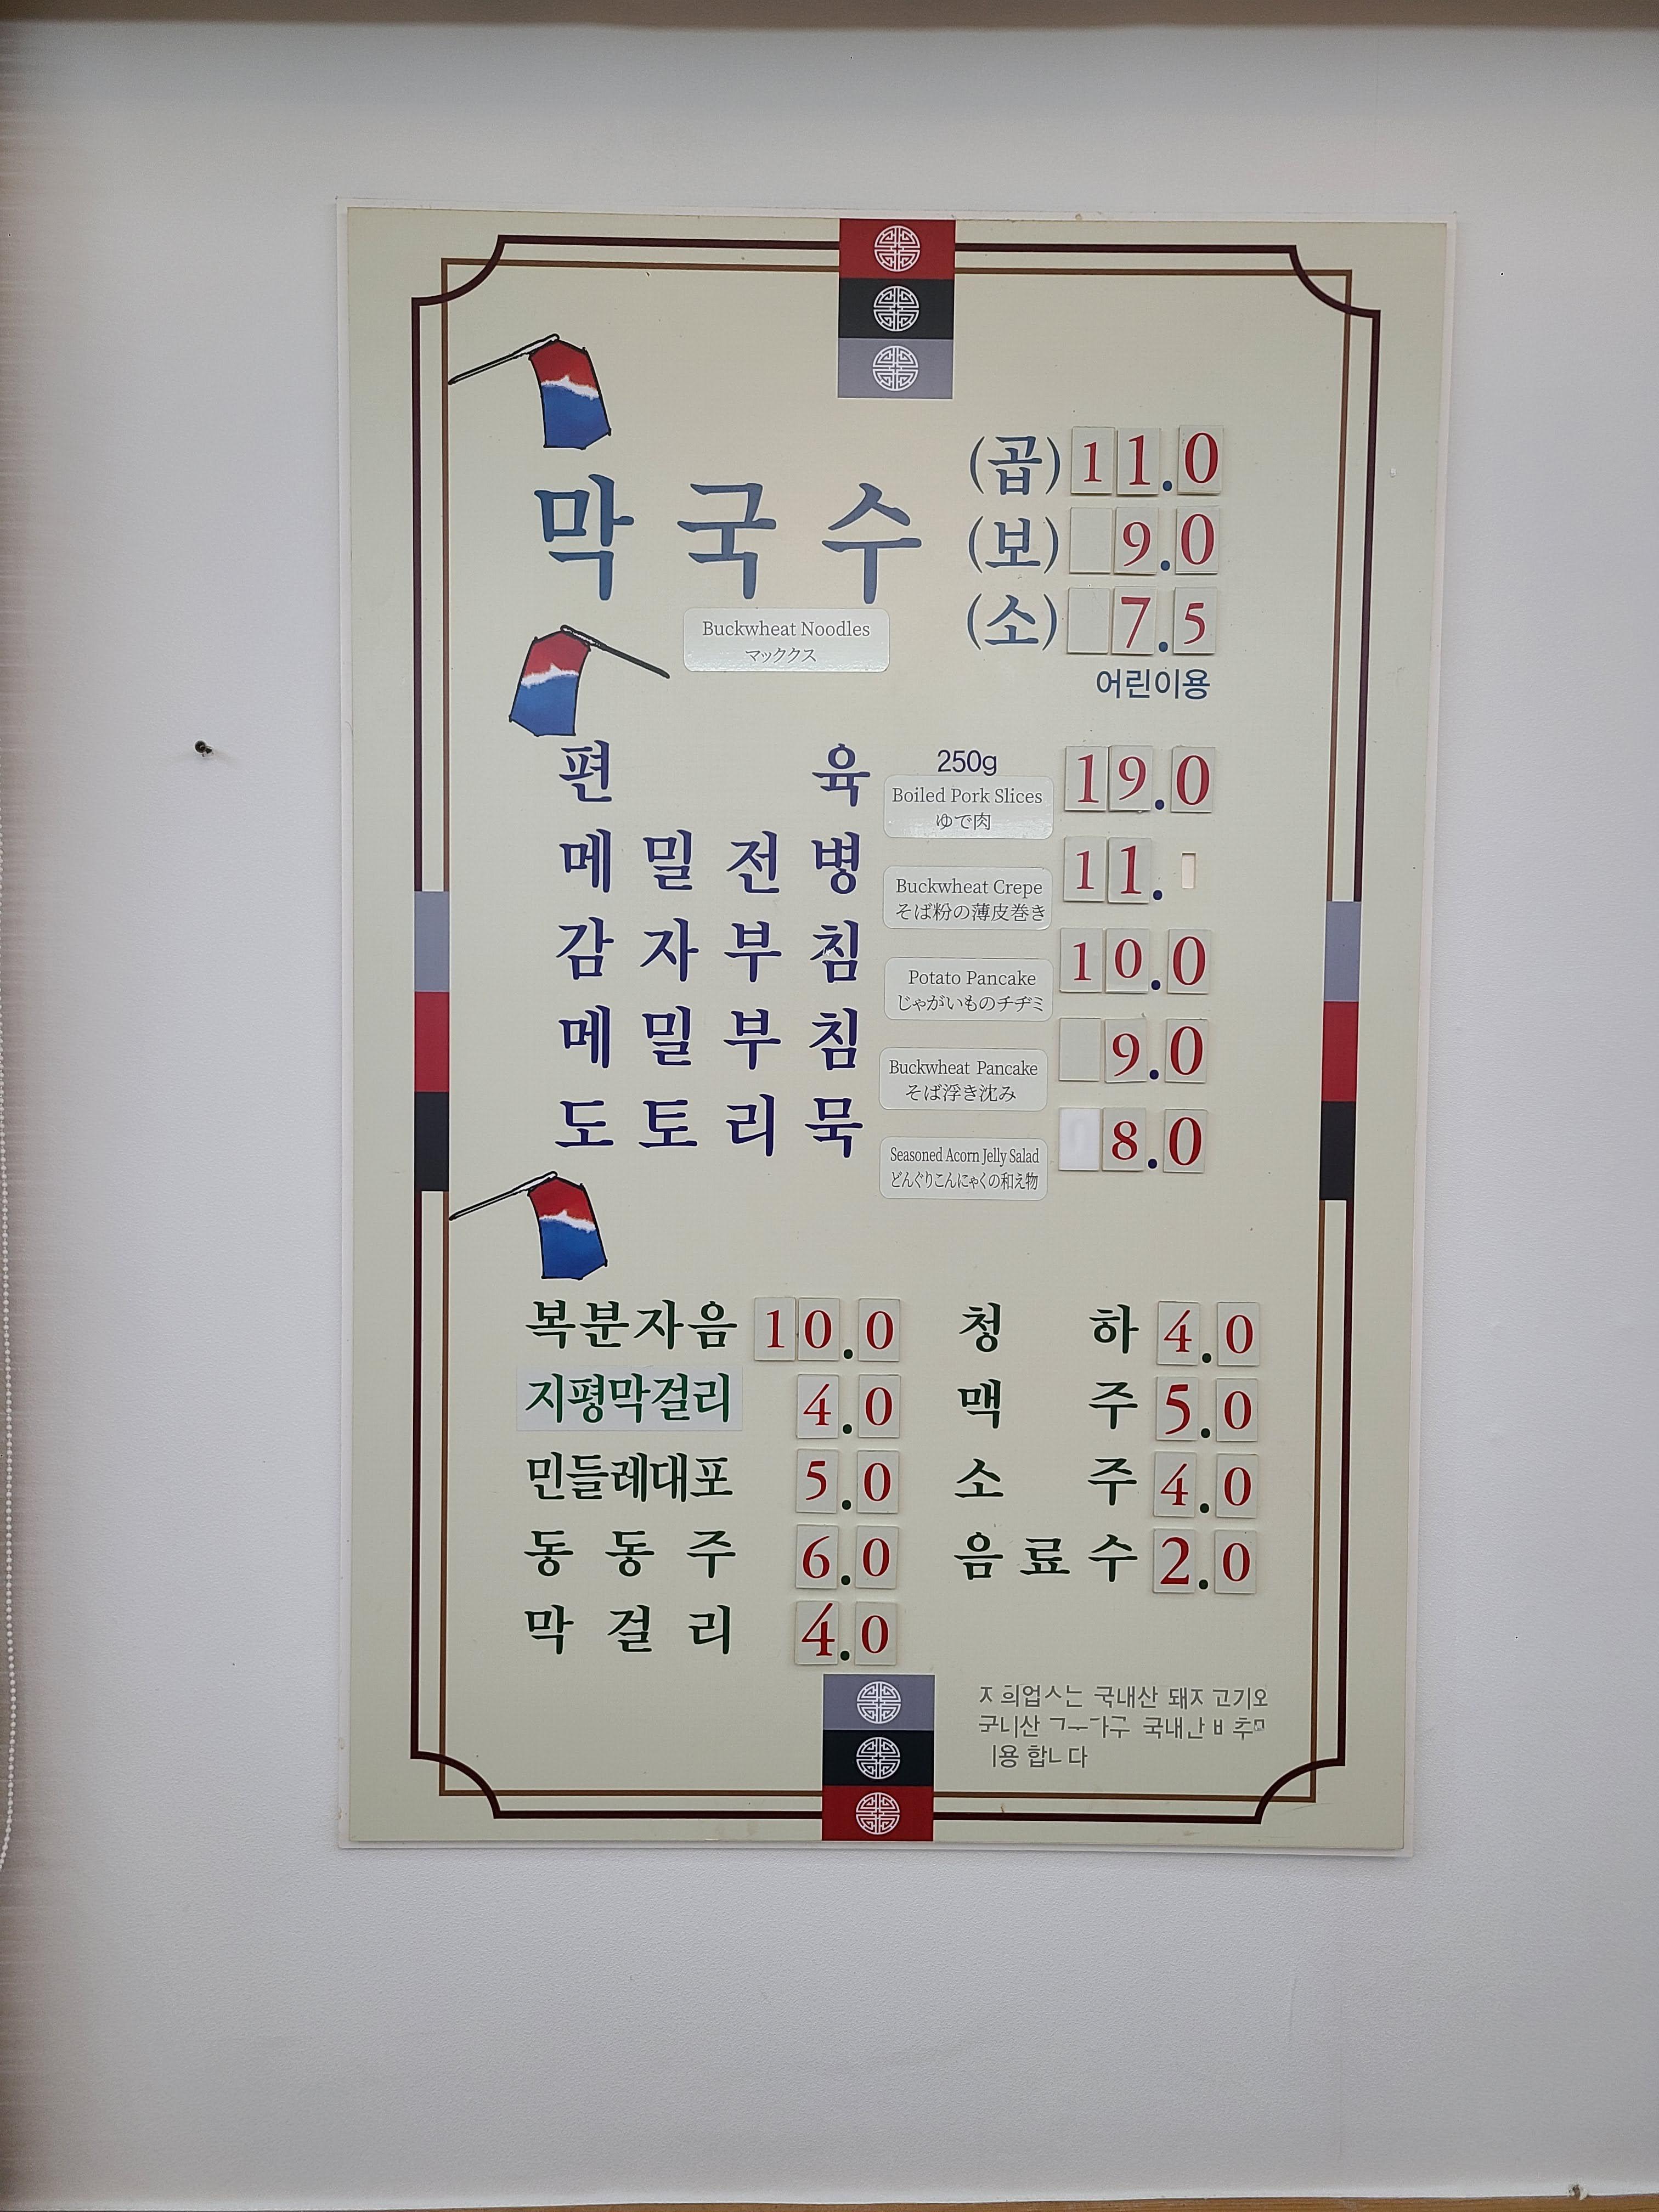 막국수
(곱) 11.0
(보) 9.0
(소) 7.5
어린이용
Buckwheat Noodles
マッククス
편육 250g 19.0
Boiled Pork Slices
ゆで肉
메밀전병 11.
Buckwheat Crepe
そば粉の薄皮巻き
감자부침 10.0
Potato Pancake
じゃがいものチヂミ
메밀부침 9.0
Buckwheat Pancake
そば浮き沈み
도토리묵 8.0
Seasoned Acorn Jelly Salad
どんぐりこんにゃくの和え物
복분자음 10.0
지평막걸리 4.0
민들레대포 5.0
동동주 6.0
막걸리 4.0
청하 4.0
맥주 5.0
소주 4.0
음료수 2.0
국내산